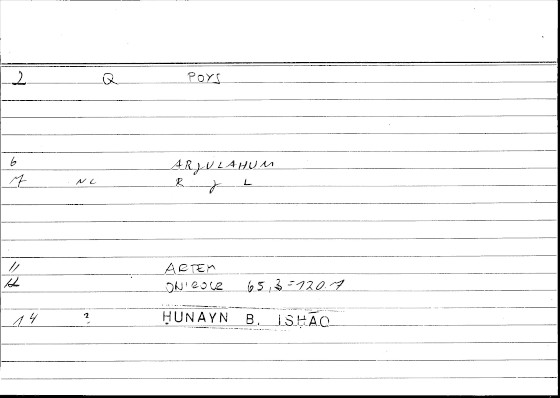 2 Q POYS
6 ARJULAHUM
7 NC R J L
11 ARTEM
12 65,3=120.7
14 ? ḤUNAYN B. ISḤĀQ